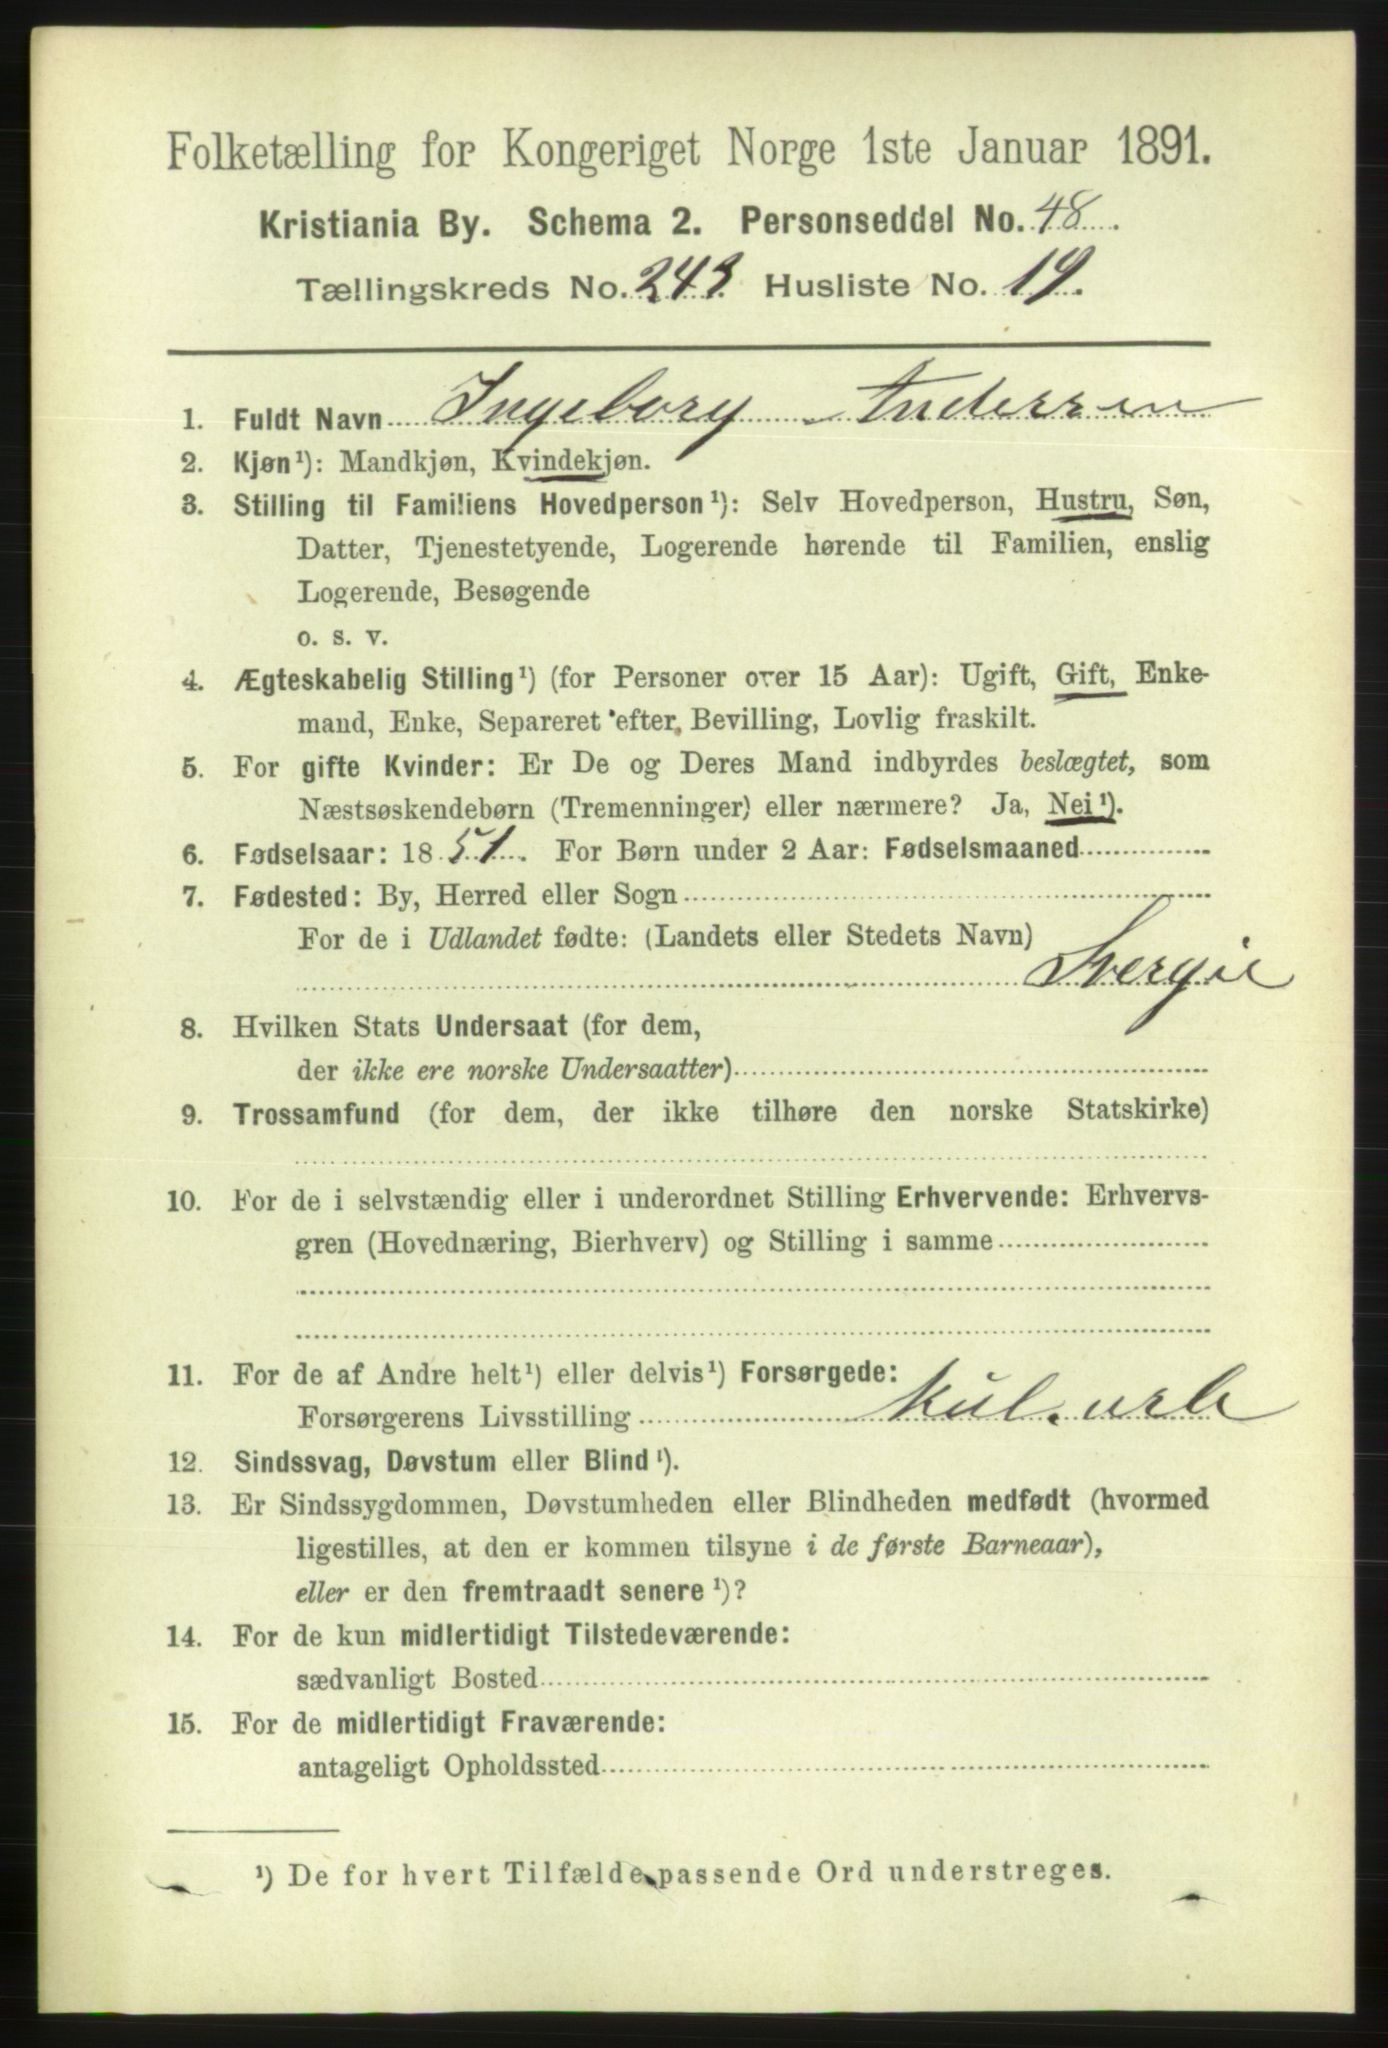 Folketælling for Kongeriget Norge 1ste Januar 1891.
Kristiania By. Schema 2. Personseddel No. 48.
Tællingskreds No. 243 Husliste No. 19.
1. Fuldt Navn Ingeborg Andersen
2. Kjøn¹): Mandkjøn, Kvindekjøn.
3. Stilling til Familiens Hovedperson¹): Selv Hovedperson, Hustru, Søn,
Datter, Tjenestetyende, Logerende hørende til Familien, enslig
Logerende, Besøgende
o. s. v.
4. Ægteskabelig Stilling¹) (for Personer over 15 Aar): Ugift, Gift, Enke-
mand, Enke, Separeret efter Bevilling, Lovlig fraskilt.
5. For gifte Kvinder: Er De og Deres Mand indbyrdes beslægtet, som
Næstsøskendebørn (Tremenninger) eller nærmere? Ja, Nei¹).
6. Fødselsaar: 1851. For Børn under 2 Aar: Fødselsmaaned
7. Fødested: By, Herred eller Sogn
For de i Udlandet fødte: (Landets eller Stedets Navn)
Svergie
8. Hvilken Stats Undersaat (for dem,
der ikke ere norske Undersaatter)
9. Trossamfund (for dem, der ikke tilhøre den norske Statskirke)
10. For de i selvstændig eller i underordnet Stilling Erhvervende: Erhvervs-
gren (Hovednæring, Bierhverv) og Stilling i samme
11. For de af Andre helt¹) eller delvis¹) Forsørgede:
Forsørgerens Livsstilling Kul. arb
12. Sindssvag, Døvstum eller Blind¹).
13. Er Sindssygdommen, Døvstumheden eller Blindheden medfødt (hvormed
ligestilles, at den er kommen tilsyne i de første Barneaar),
eller er den fremtraadt senere¹)?
14. For de kun midlertidigt Tilstedeværende:
sædvanligt Bosted
15. For de midlertidigt Fraværende:
antageligt Opholdssted
¹) De for hvert Tilfælde passende Ord understreges.